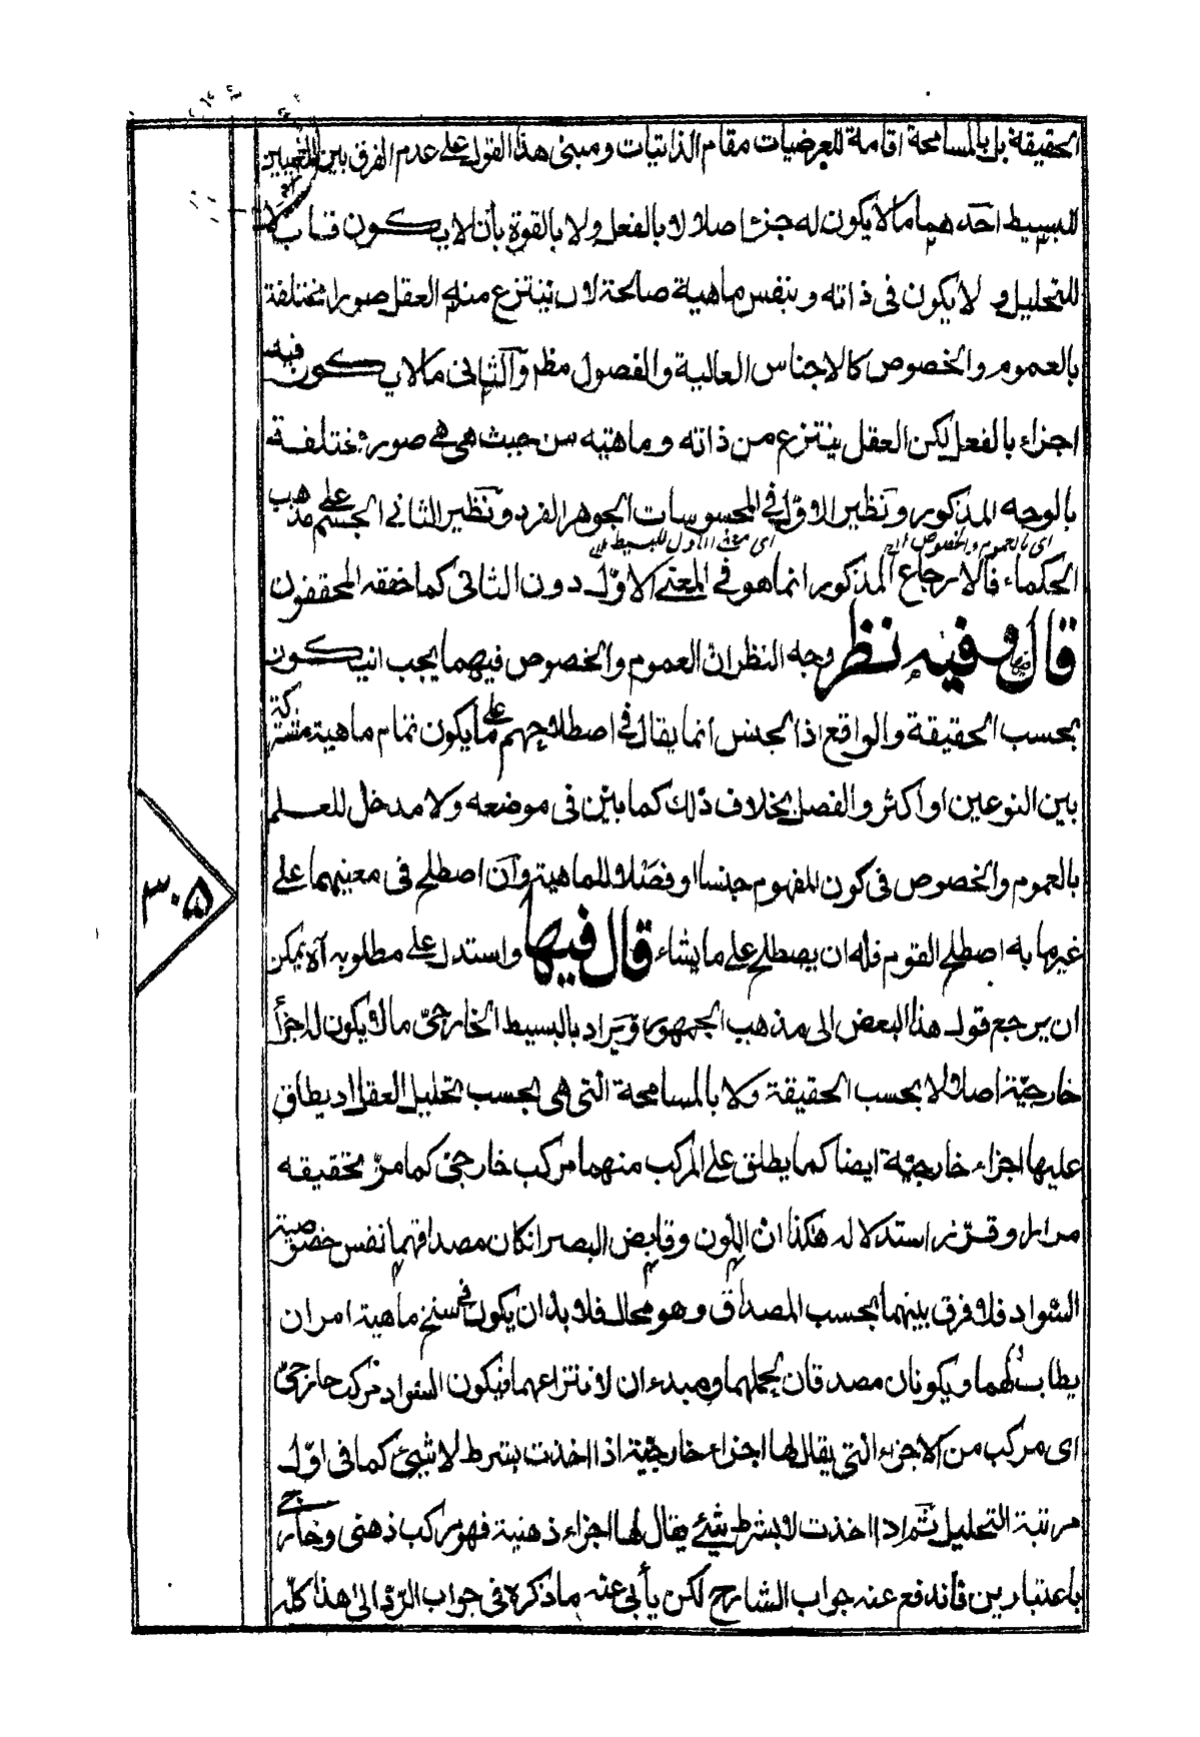 الحقيقة بل بالمسامحة اقامة للعرضيات مقام الذاتيات ومبنى هذا القول على عدم الفرق بين المعنيين
للبسيط احدهما ما لا يكون له جزء اصلا لا بالفعل ولا بالقوة بأن لا يكون قابلا
للتحليل و لا يكون فى ذاته وبنفس ماهية صالحة لان ينتزع منه العقل صورا مختلفة
بالعموم والخصوص كالاجناس العالية والفصول مظ والثانى ما لا يكون فيه
اجزاء بالفعل لكن العقل ينتزع من ذاته وماهيته من حيث هى هى صور مختلفة
بالوجه المذكور ونظير الاوّل فى المحسوسات الجوهر الفرد ونظير الثانى الجسم على مذهب
اى بالعموم والخصوص اى معنى الاول للبسيط
الحكماء فالارجاع المذكور انما هو فى المعنى الاوّل دون الثانى كما حققه المحققون
قال وفيه نظر وجه النظر ان العموم والخصوص فيهما يجب ان يكون
بحسب الحقيقة والواقع اذ الجنس انما يقال فى اصطلاحهم على ما يكون تمام ماهية مشتركة
بين النوعين او اكثر والفصل بخلاف ذلك كما بيّن فى موضعه ولا مدخل للعلم
بالعموم والخصوص فى كون المفهوم جنسا او فصلا للماهية وان اصطلح فى معنيهما على
غير ما به اصطلح القوم فله ان يصطلح على ما يشاء قال فيها واستدل على مطلوبه آه يمكن
ان يرجع قول هذا البعض الى مذهب الجمهور ويراد بالبسيط الخارجىّ ما لا يكون له اجزأ
خارجيّة اصلا لا بحسب الحقيقة ولا بالمسامحة التى هى بحسب تحليل العقل اذ يطلق
عليها اجزاء خارجيّة ايضا كما يطلق على المركب منهما مركب خارجىّ كما مرّ تحقيقه
مرارا وقرّر استدلاله هكذا ان اللون وقابض البصر ان كان مصداقهما نفس خصوصية
السواد فلا فرق بينهما بحسب المصداق وهو محال فلا بد ان يكون فى سنخ ماهية امران
يطابق لهما ويكونان مصدقان لحملهما ومبدءان لانتزاعهما فيكون السواد مركب خارجىّ
اى مركب من الاجزاء التى يقال لها اجزاء خارجيّة اذا اخذت بشرط لا شيئ كما فى اوّل
مرتبة التحليل ثم اذا اخذت لا بشرط شيئ يقال لها اجزاء ذهنية فهو مركب ذهنى وخارجى
باعتبارين فاندفع عنه جواب الشارح لكن يأبى عنه ما ذكره فى جواب الرّد الى هذا كلّه
٣٠٥